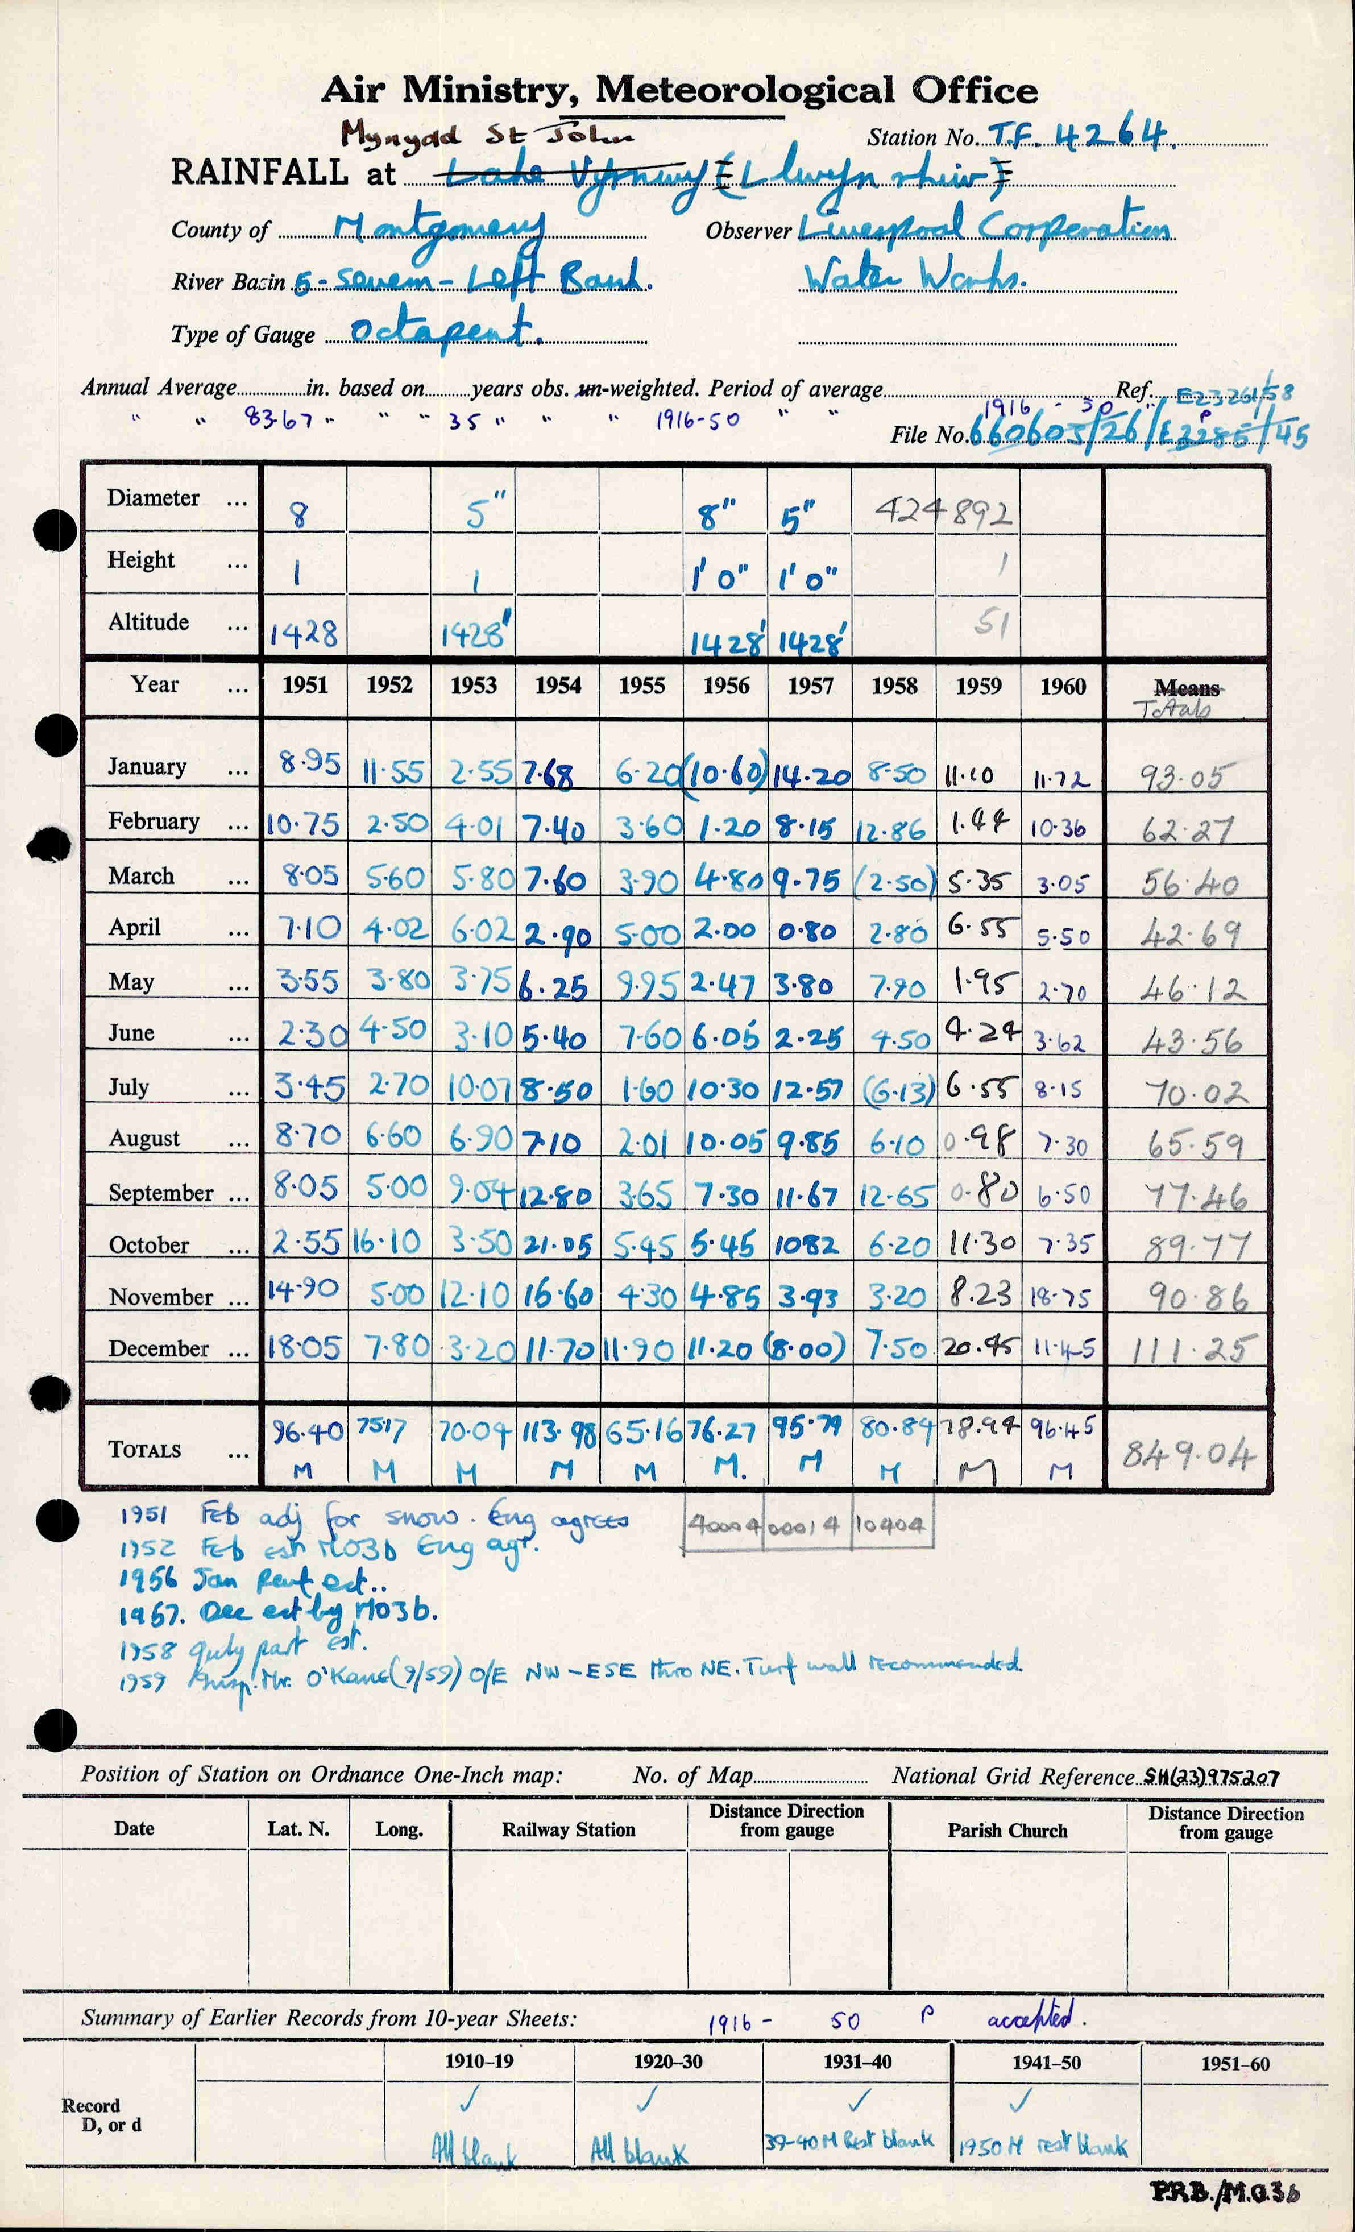 Air Ministry, Meteorological Office
Mynydd St John
Station No. T.F. 4264.
RAINFALL at Lake Vyrnwy (Llwyn rhiw)
County of Montgomery Observer Liverpool Corporation
River Basin 5 - Severn - Left Bank. Water Works.
Type of Gauge Octapent.
Annual Average in. based on years obs. un-weighted. Period of average 1916 - 50 Ref. E23261/58
" " 83.67 " " " 35 " " " 1916-50 " "
File No. 660603/26/E2285/45
Diameter ... 8 5" 8" 5" 424892
Height ... 1 1 1' 0" 1' 0" 1
Altitude ... 1428 1428' 1428' 1428' 51
Year ... 1951 1952 1953 1954 1955 1956 1957 1958 1959 1960 Means
Totals
January ... 8.95 11.55 2.55 7.68 6.20 (10.60) 14.20 8.50 11.10 11.72 93.05
February ... 10.75 2.50 4.01 7.40 3.60 1.20 8.15 12.86 1.44 10.36 62.27
March ... 8.05 5.60 5.80 7.60 3.90 4.80 9.75 (2.50) 5.35 3.05 56.40
April ... 7.10 4.02 6.02 2.90 5.00 2.00 0.80 2.80 6.55 5.50 42.69
May ... 3.55 3.80 3.75 6.25 9.95 2.47 3.80 7.90 1.95 2.70 46.12
June ... 2.30 4.50 3.10 5.40 7.60 6.05 2.25 4.50 4.24 3.62 43.56
July ... 3.45 2.70 10.07 8.50 1.60 10.30 12.57 (6.13) 6.55 8.15 70.02
August ... 8.70 6.60 6.90 7.10 2.01 10.05 9.85 6.10 0.98 7.30 65.59
September ... 8.05 5.00 9.04 12.80 3.65 7.30 11.67 12.65 0.80 6.50 77.46
October ... 2.55 16.10 3.50 21.05 5.45 5.45 1082 6.20 11.30 7.35 89.77
November ... 14.90 5.00 12.10 16.60 4.30 4.85 3.93 3.20 8.23 18.75 90.86
December ... 18.05 7.80 3.20 11.70 11.90 11.20 (8.00) 7.50 20.45 11.45 111.25
TOTALS ... 96.40 75.17 70.04 113.98 65.16 76.27 95.79 80.84 78.94 96.45 849.04
M M M M M M. M M M M
1951 Feb adj for snow. Eng agrees 40004 00014 10404
1952 Feb est MO3b Eng agr.
1956 Jan part est..
1957. Dec est by MO3b.
1958 July part est.
1959 Insp. Mr. O'Kane (9/59) O/E NW - ESE thro NE. Turf wall recommended.
Position of Station on Ordnance One-Inch map: No. of Map National Grid Reference SH(23)975207
Date Lat. N. Long. Railway Station Distance Direction from gauge Parish Church Distance Direction from gauge
Summary of Earlier Records from 10-year Sheets: 1916 - 50 P accepted.
1910–19 1920–30 1931–40 1941–50 1951–60
Record ✓ ✓ ✓ ✓
D, or d All blank All blank 39-40 M Rest blank 1950 M rest blank
P.R.B./M.O.3b